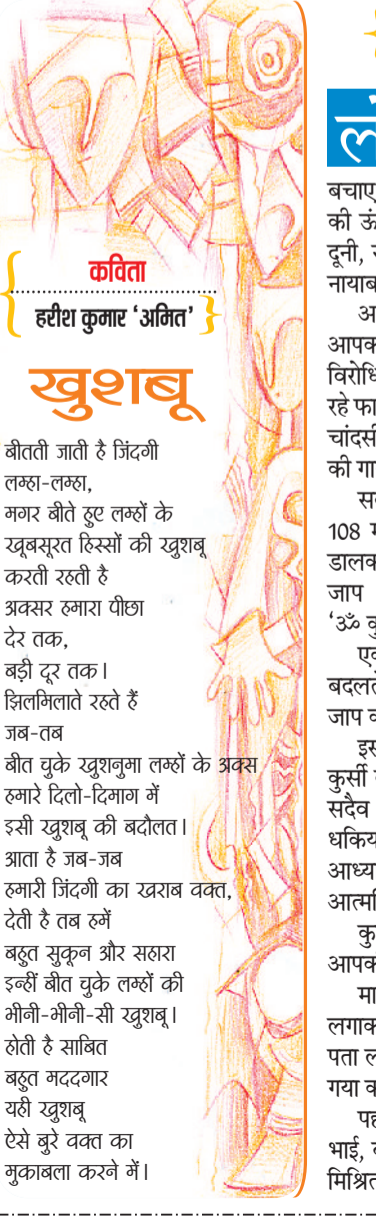 कविता
हरीश कुमार ‘अमित’
खुशबू
बीतती जाती है जिंदगी
लम्हा-लम्हा,
मगर बीते हुए लम्हों के
खूबसूरत हिस्सों की खुशबू
करती रहती है
अक्सर हमारा पीछा
देर तक,
बड़ी दूर तक।
झिलमिलाते रहते हैं
जब-तब
बीत चुके खुशनुमा लम्हों के अक्स
हमारे दिलो-दिमाग में
इसी खुशबू की बदौलत।
आता है जब-जब
हमारी जिंदगी का खराब वक्त,
देती है तब हमें
बहुत सुकून और सहारा
इन्हीं बीत चुके लम्हों की
भीनी-भीनी-सी खुशबू।
होती है साबित
बहुत मददगार
यही खुशबू
ऐसे बुरे वक्त का
मुकाबला करने में।
बचाए
की ऊं
दूनी,
नायाब
अ
आपक
विरोधि
रहे फा
चांदसी
की गा
स
108
डालक
जाप
‘ॐ कु
ए
बदलते
जाप व
इस
कुर्सी
सदैव
धकिय
आध्या
आत्मवि
कु
आपक
मा
लगाक
पता ल
गया व
पह
भाई,
मिश्रित